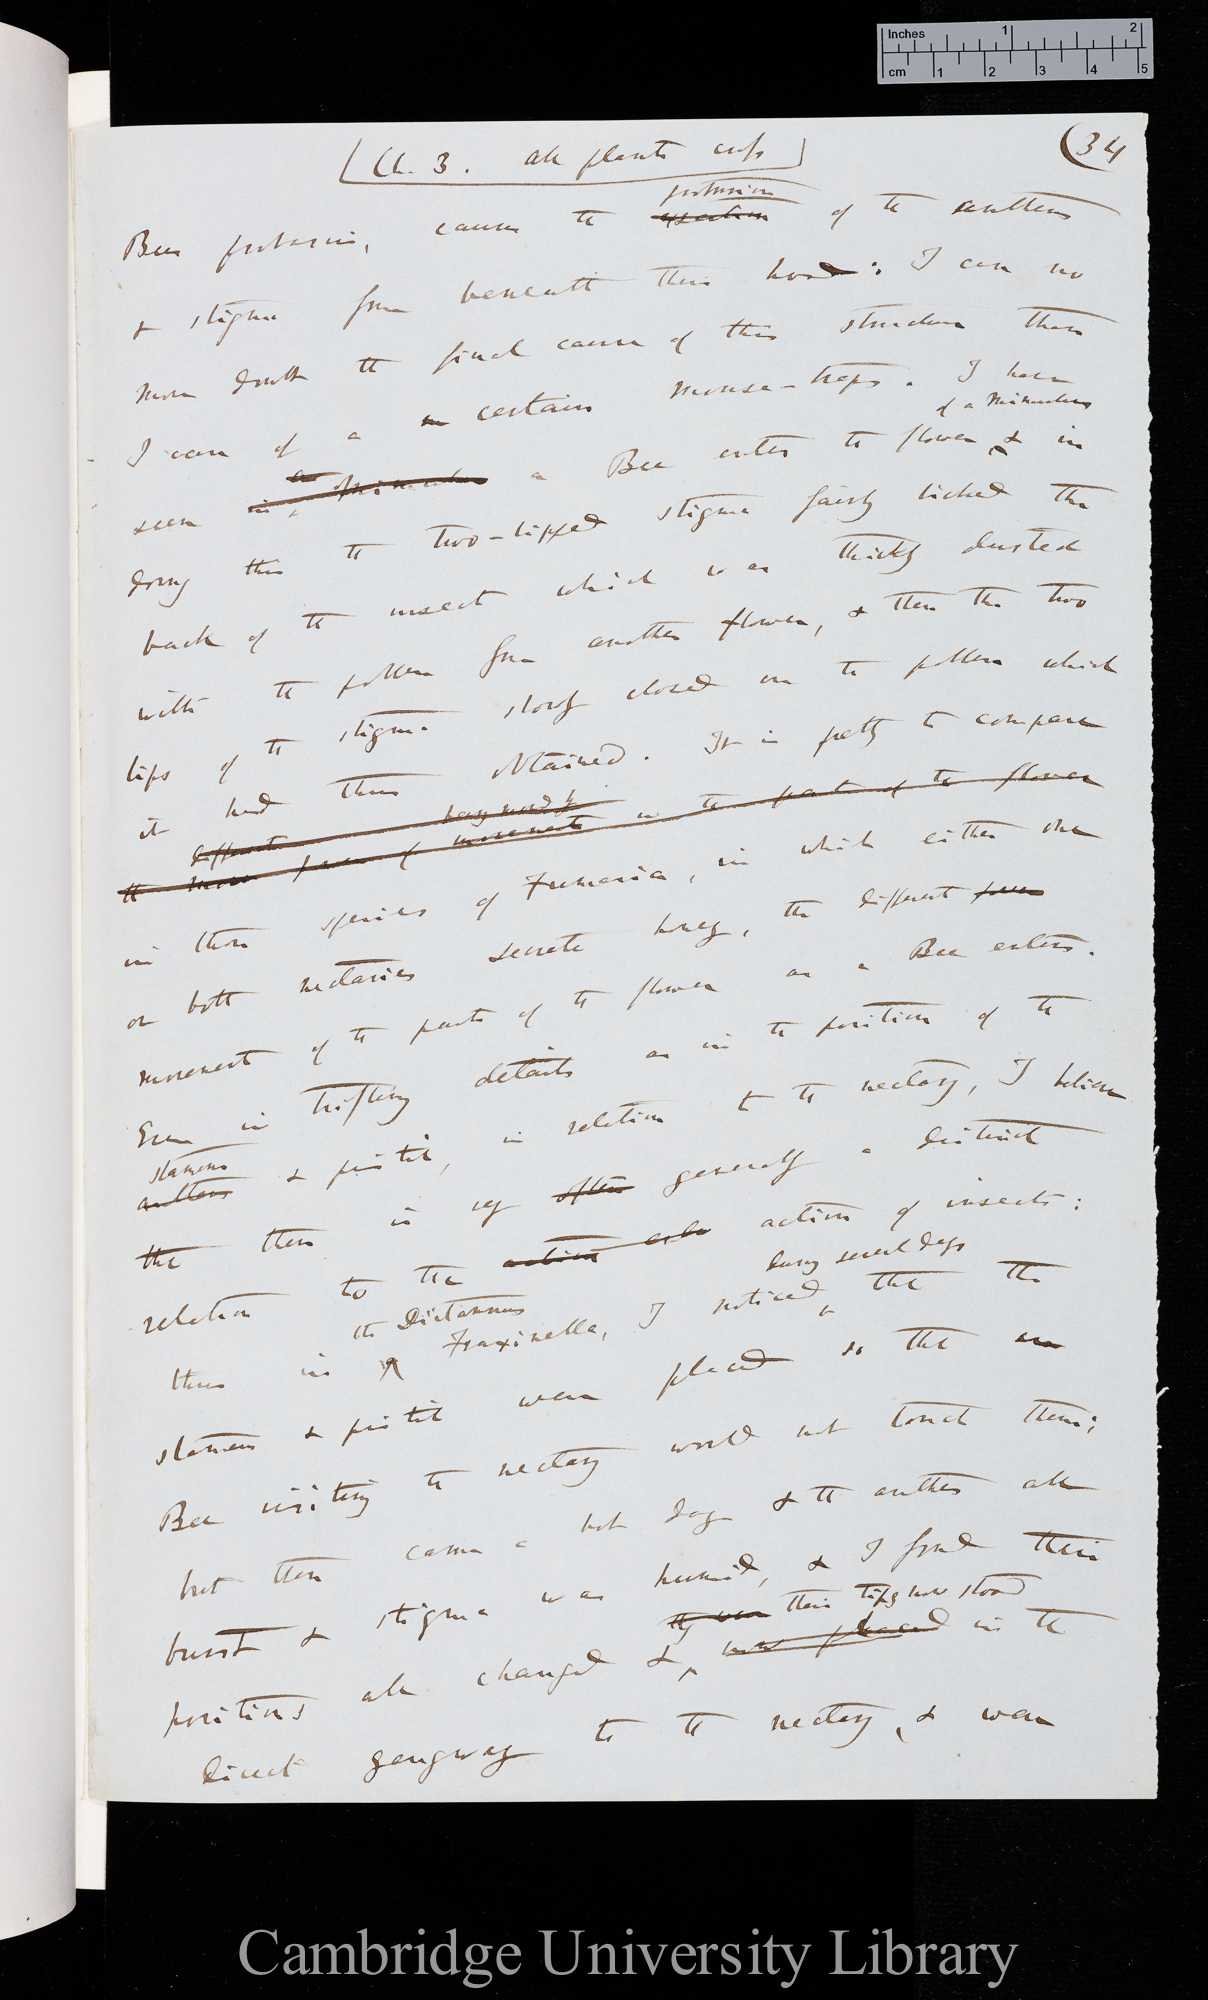 Inches 1 2
cm 1 2 3 4 5
Ch. 3. all plants cross
(34
protrusion
Bees proboscis, causes the exsertion of the anthers
& stigma from beneath their hood: I can no
more doubt the final cause of this structure than
I can of a certain mouse-traps. I have
of a Mimulus
seen in a Mimulus a Bee enter the flower & in
doing this the two-lipped stigma fairly licked the
back of the insect which was thickly dusted
with the pollen from another flower, & then the two
lips of the stigma slowly closed on the pollen which
it had thus obtained. It is pretty to compare
different
the movements in the parts of the flower
in those species of Fumaria, in which either one
or both nectaries secrete honey, the different
movement of the parts of the flower as a Bee enters.
Even in trifling details as in the position of the
stamens
anthers & pistil, in relation to the nectary, I believe
the there is very often generally a distinct
relation to the action of insects:
during several days
the Dictamnus
thus in Fraxinella, I noticed that the
stamens & pistil were placed so that a
Bee visiting the nectary would not touch them;
but then came a hot day & the anthers all
burst & stigma was humid, & I found their
they were their tips now stood
positions all changed & now placed in the
direct gangway to the nectary, & were
Cambridge University Library